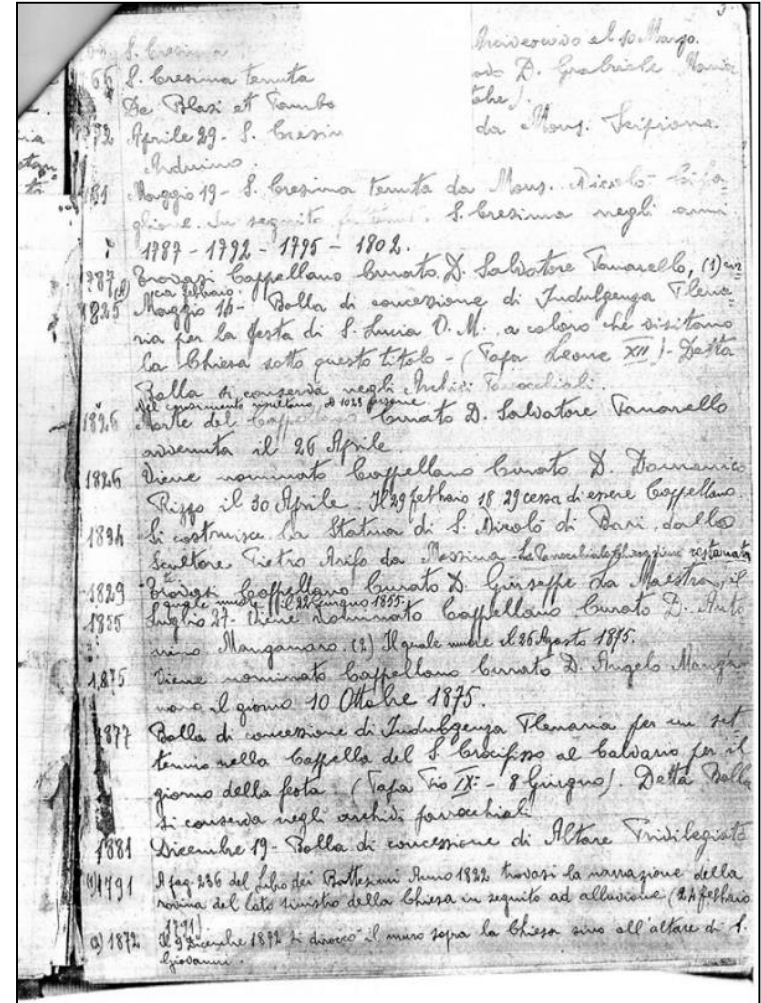 3.
S. Cresima Arcivescovo el 10 Marzo.
66 S. Cresima tenuta D. Grabriele Maria
De Blasi et Tambo
1772 Aprile 29 - S. Cresim da Mons. Scipione
Arduino.
1781 Maggio 19 - S. Cresima tenuta da Mons. Nicolò
glione. In seguito S. Cresima negli anni
1787 - 1792 - 1795 - 1802.
1787 Trovasi Cappellano Curato D. Salvatore Tomarello, (1)
1825 Maggio 14 - Bolla di concessione di Indulgenza Plena-
ria per la festa di S. Lucia V. M. a coloro che visitano
la Chiesa sotto questo titolo - (Papa Leone XII) - Detta
Bolla si conserva negli Archivi Parrocchiali.
Nel censimento risultano, 1023 persone.
1826 Morte del Cappellano Curato D. Salvatore Tomarello
avvenuta il 26 Aprile.
1826 Viene nominato Cappellano Curato D. Domenico
Rizzo il 30 Aprile. Il 29 febbraio 1829 cessa di essere Cappellano.
1834 Si costruisce la Statua di S. Nicolò di Bari dallo
Scultore Pietro Arifo da Messina - La Parrocchiale restaurata
1829 Trovasi Cappellano Curato D. Giuseppe La Maestra, il
quale muore il 22 Giugno 1855.
1855 Luglio 27 - Viene Nominato Cappellano Curato D. Anto
nino Manganaro. (2) Il quale muore il 26 Agosto 1875.
1875 Viene nominato Cappellano Curato D. Angelo Manga
naro il giorno 10 Ottobre 1875.
1877 Bolla di concessione di Indulgenza Plenaria per un set
tennio nella Cappella del S. Crocifisso al Calvario per il
giorno della festa. (Papa Pio IX - 8 Giugno). Detta Bolla
si conserva negli archivi parrocchiali
1881 Dicembre 19 - Bolla di concessione di Altare Privilegiato
(1) 1791 A pag. 236 del Libro dei Battesimi Anno 1822 trovasi la narrazione della
rovina del lato sinistro della Chiesa in seguito ad alluvione (24 febbraio
1791)
(2) 1872 Il 9 Dicembre 1872 si diroccò il muro sopra la Chiesa sino all'altare di S.
Giovanni.